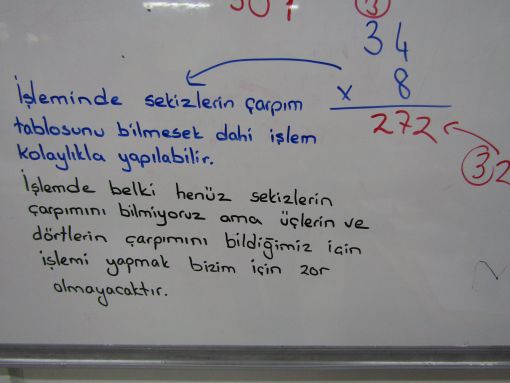 3
34
x 8
272
32
İşleminde sekizlerin çarpım
tablosunu bilmesek dahi işlem
kolaylıkla yapılabilir.
İşlemde belki henüz sekizlerin
çarpımını bilmiyoruz ama üçlerin ve
dörtlerin çarpımını bildiğimiz için
işlemi yapmak bizim için zor
olmayacaktır.